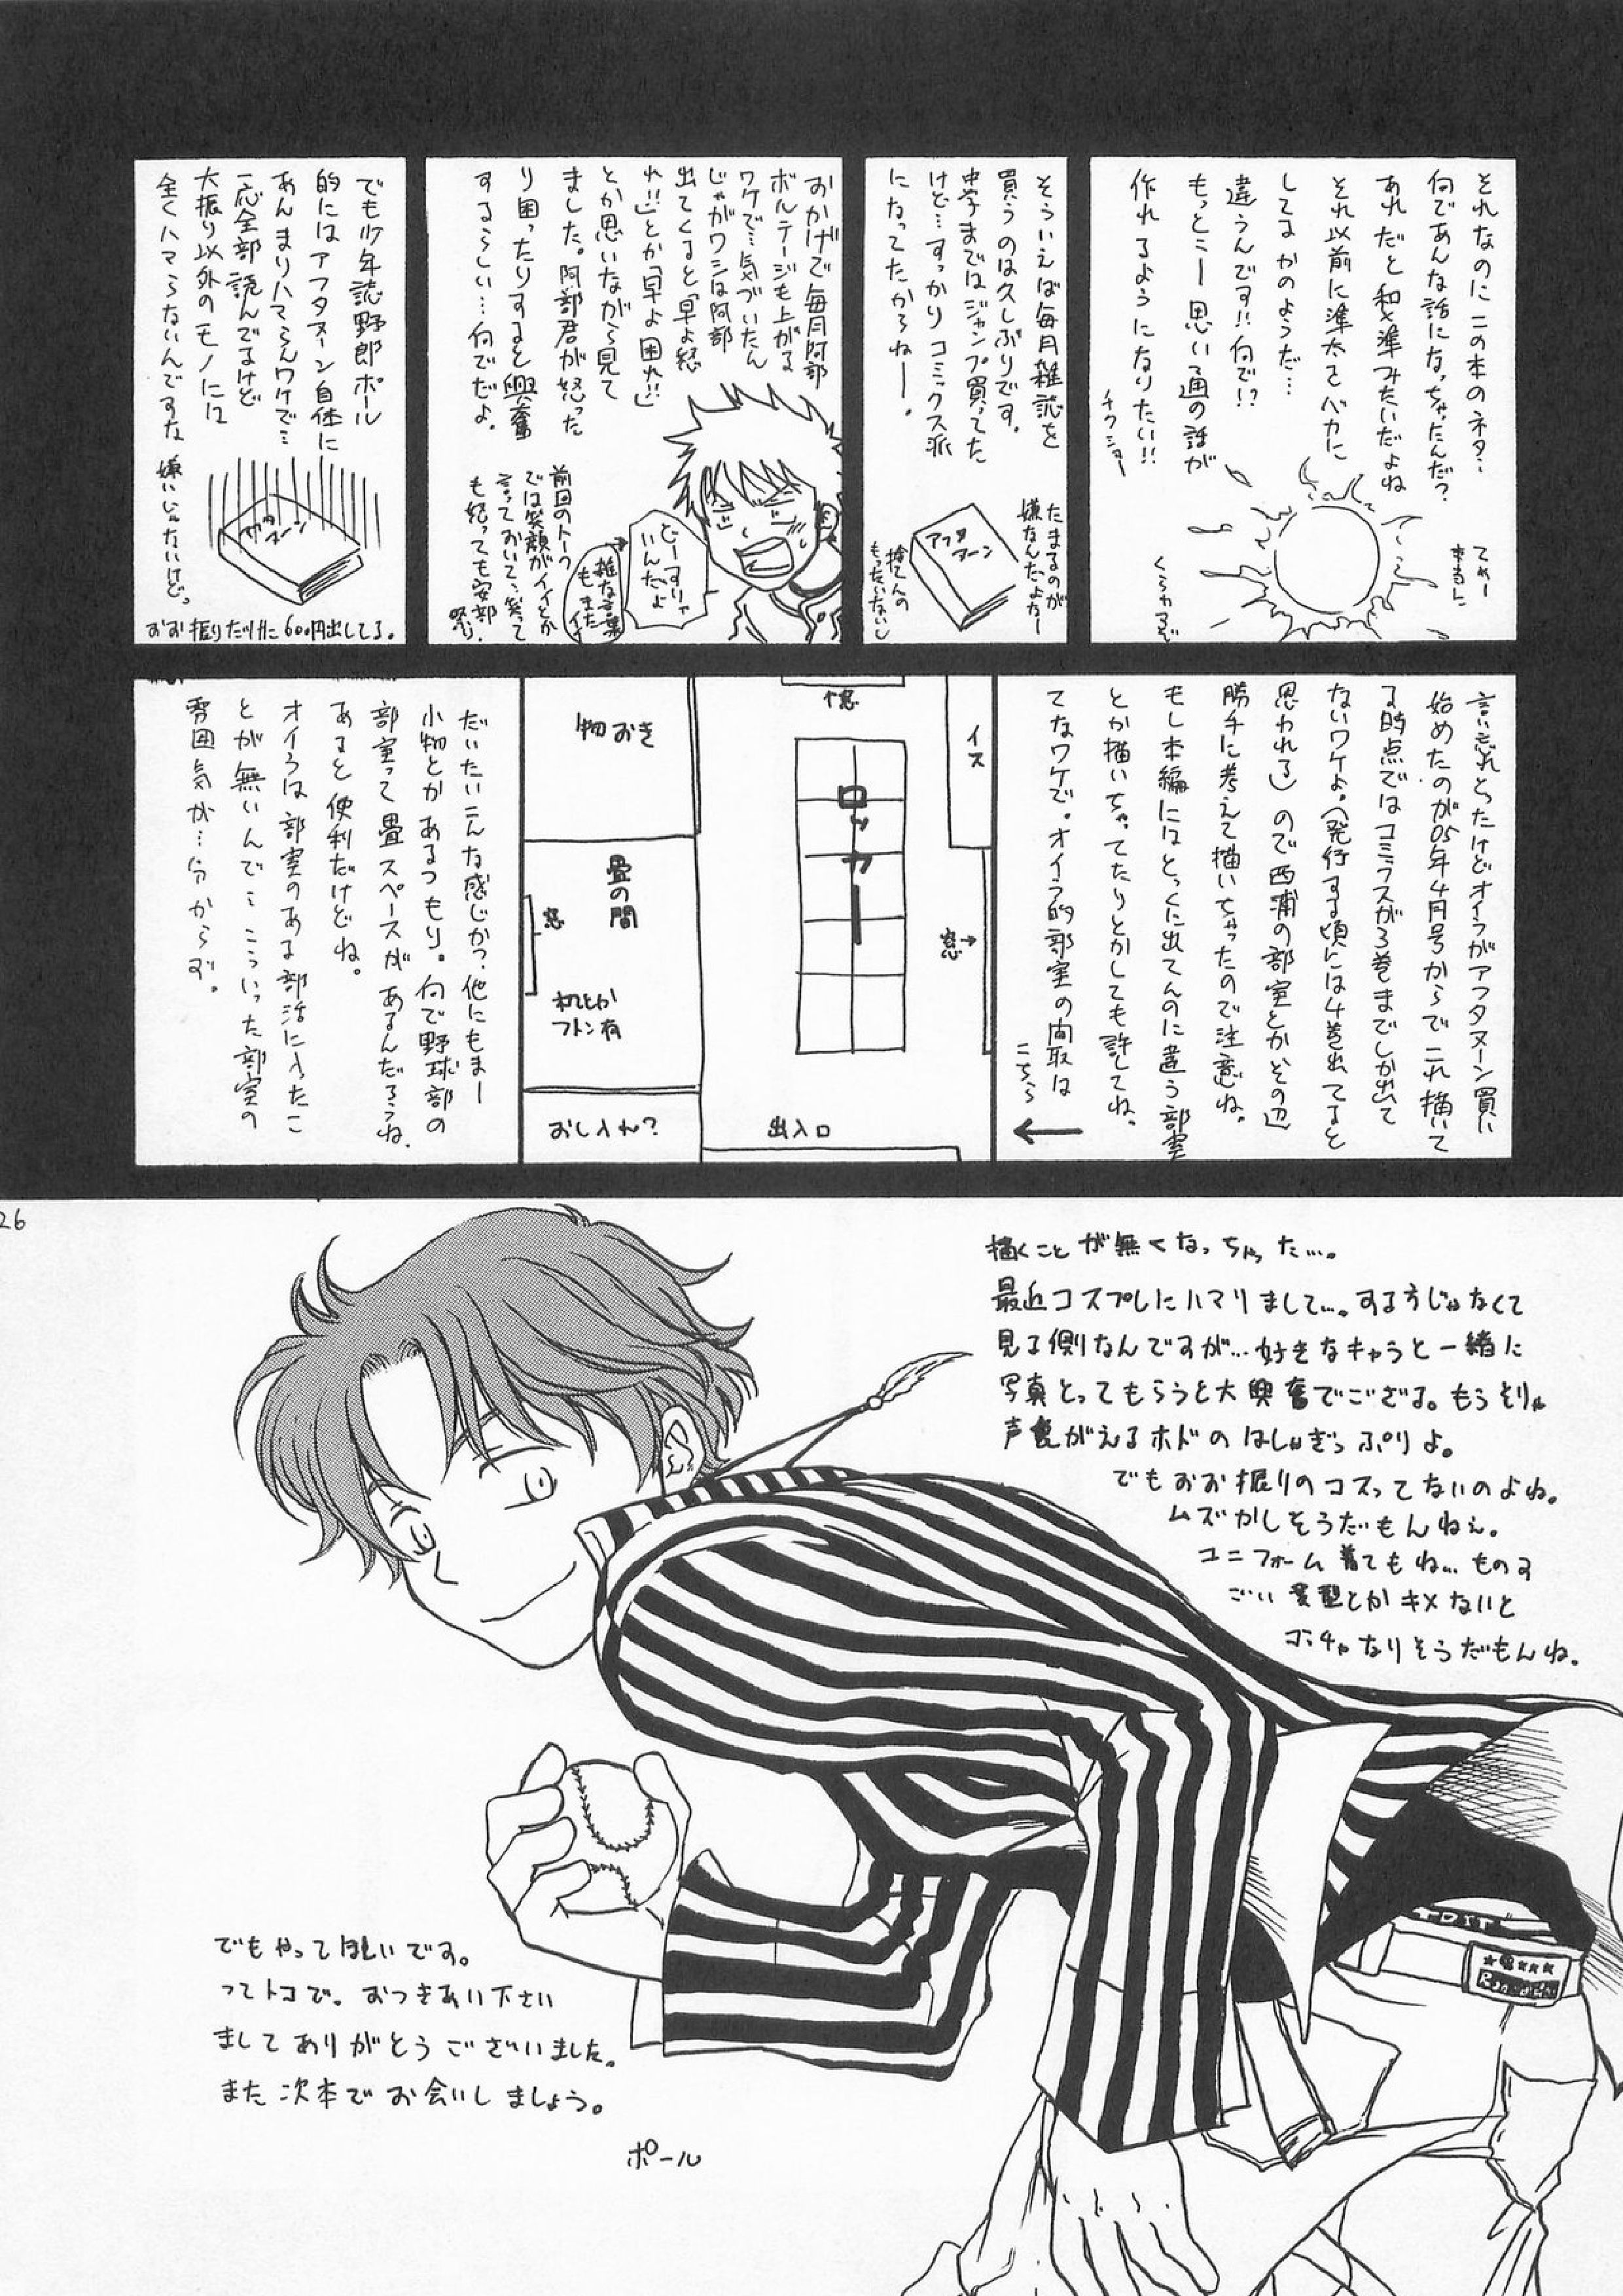 それなのにこの本のネタ…
何であんな話になっちゃったんだ?
あれだと和×準みたいだよね
それ以前に準太をバカに
してるかのようだ…
違うんです!!何で!?
もっとこー思い通の話が
作れるようになりたい!!
チクショー
てれー
くらわすぞ
そういえば毎月雑誌を
買うのは久しぶりです。
中学まではジャンプ買ってた
けど…すっかりコミックス派
になってたからねー。
たまるのが
嫌なんだよねー
捨てんの
もったいないし
アフタヌーン
おかげで毎月阿部
ボルテージも上がる
ワケで…気づいたん
じゃがワシは阿部
出てくると「早よ怒
れ!!」とか「早よ困れ!!」
とか思いながら見て
ました。阿部君が怒った
り困ったりすると興奮
するらしい…何でだよ。
どーすりゃ
いんだよ
雑な言葉
もまたイイ
前回のトークでは
笑顔がイイとか
言っておいて、笑って
も怒っても安部
祭り。
でも少年誌野郎ポール
的にはアフタヌーン自体に
あんまりハマらんワケで…
一応全部読んでるけど
大振り以外のモノには
全くハマらないんですな
嫌いじゃないけど。
アフタヌーン
おお振りだけに600円出してる。
言い忘れとったけどオイラがアフタヌーン買い
始めたのが05年4月号からでこれ描いて
る時点ではコミックスが3巻までしか出て
ないワケよ。(発行する頃には4巻出てると
思われる)ので西浦の部室とかその辺
勝手に考えて描いちゃったので注意ね。
もし本編にはとっくに出てんのに違う部室
とか描いちゃってたりとかしても許してね。
てなワケで。オイラ的部室の間取は
こちら
←
イス
窓→
↑窓
ロッカー
出入口
物おき
畳の間
窓
机とか
フトン有
おし入れ?
だいたいこんな感じかっ、他にもまー
小物とかあるつもり。何で野球部の
部室って畳スペースがあるんだろうね。
あると便利だけどね。
オイラは部室のある部活に入ったこ
とが無いんで…こういった部室の
雰囲気が…分からず。
26
描くことが無くなっちゃった…。
最近コスプレにハマりまして…。する方じゃなくて
見る側なんですが…好きなキャラと一緒に
写真とってもらうと大興奮でござる。もうそりゃ
声裏がえるホドのはしゃぎっぷりよ。
でもおお振りのコスってないのよね。
ムズかしそうだもんねぇ。
ユニフォーム着てもね…ものす
ごい髪型とかキメないと
ゴッチャなりそうだもんね。
でもやってほしいです。
ってトコで。おつきあい下さい
ましてありがとうございました。
また次本でお会いしましょう。
ポール